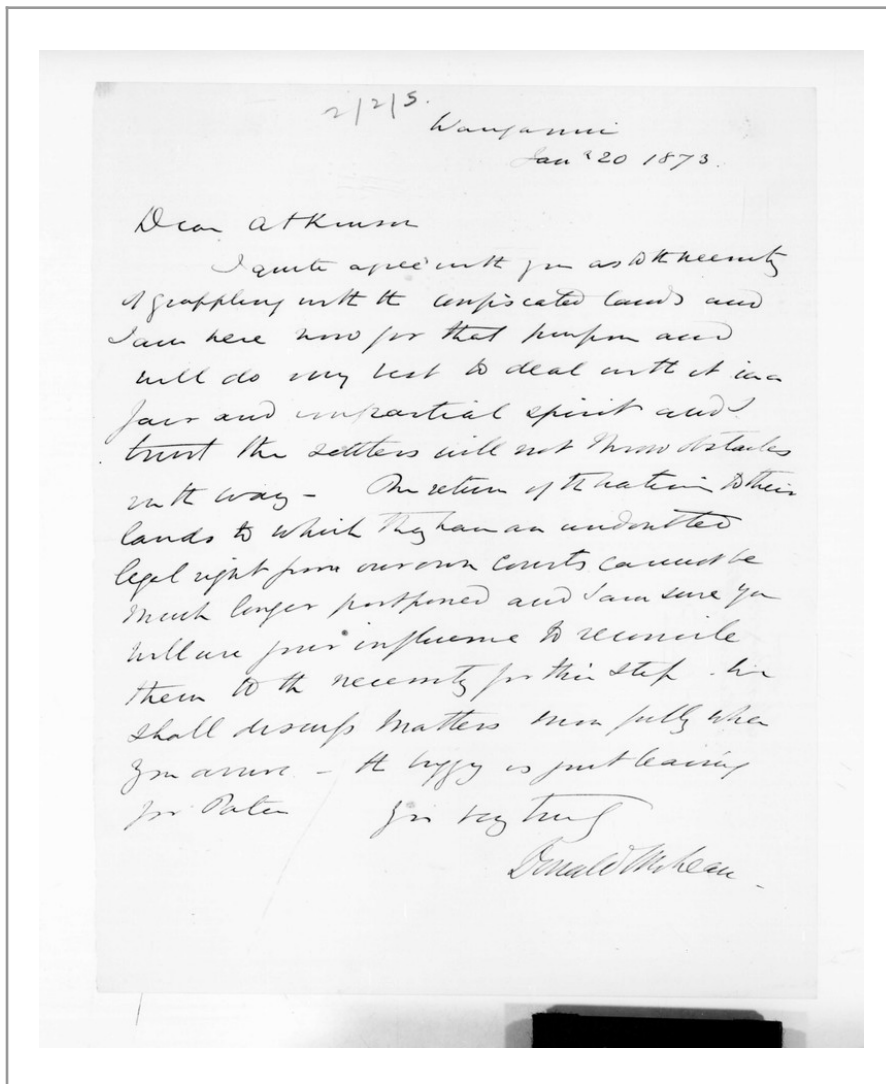 2/2/5.
Wanganui
Jany 20 1873.
Dear Atkinson
I quite agree with you as to the necessity
of grappling with the confiscated lands and
I am here now for that purpose and
will do my best to deal with it in a
fair and impartial spirit and I
trust the settlers will not throw obstacles
in the way - The return of the natives to their
lands to which they have an undoubted
legal right from our own Courts cannot be
much longer postponed and I am sure you
will use your influence to reconcile
them to the necessity for this step. We
shall discuss matters more fully when
you arrive - the buggy is just leaving
for Patea Yrs very truly
Donald McLean